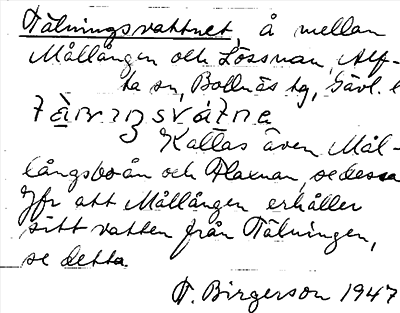 Tälningsvattnet, å mellan
Mållången och Lössnan, Alf-
ta sn, Bollnäs tg, Gävl. l
Kallas även Mål-
långsboån och Flaxnan, se dessa
Jfr att Mållången erhåller
sitt vatten från Tälningen,
se detta
T. Birgerson 1947